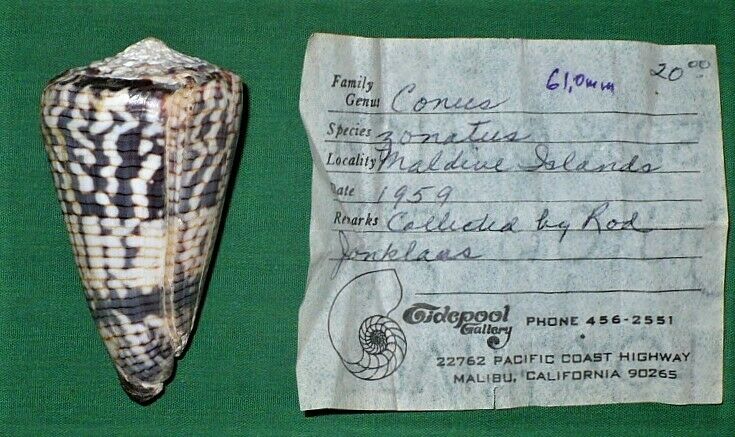 20 00
61,0mm
Family
Genus Conus
Species zonatus
Locality Maldive Islands
Date 1959
Remarks Collected by Rod
Jonklaas
Tidepool
Gallery
PHONE 456-2551
22762 PACIFIC COAST HIGHWAY
MALIBU, CALIFORNIA 90265